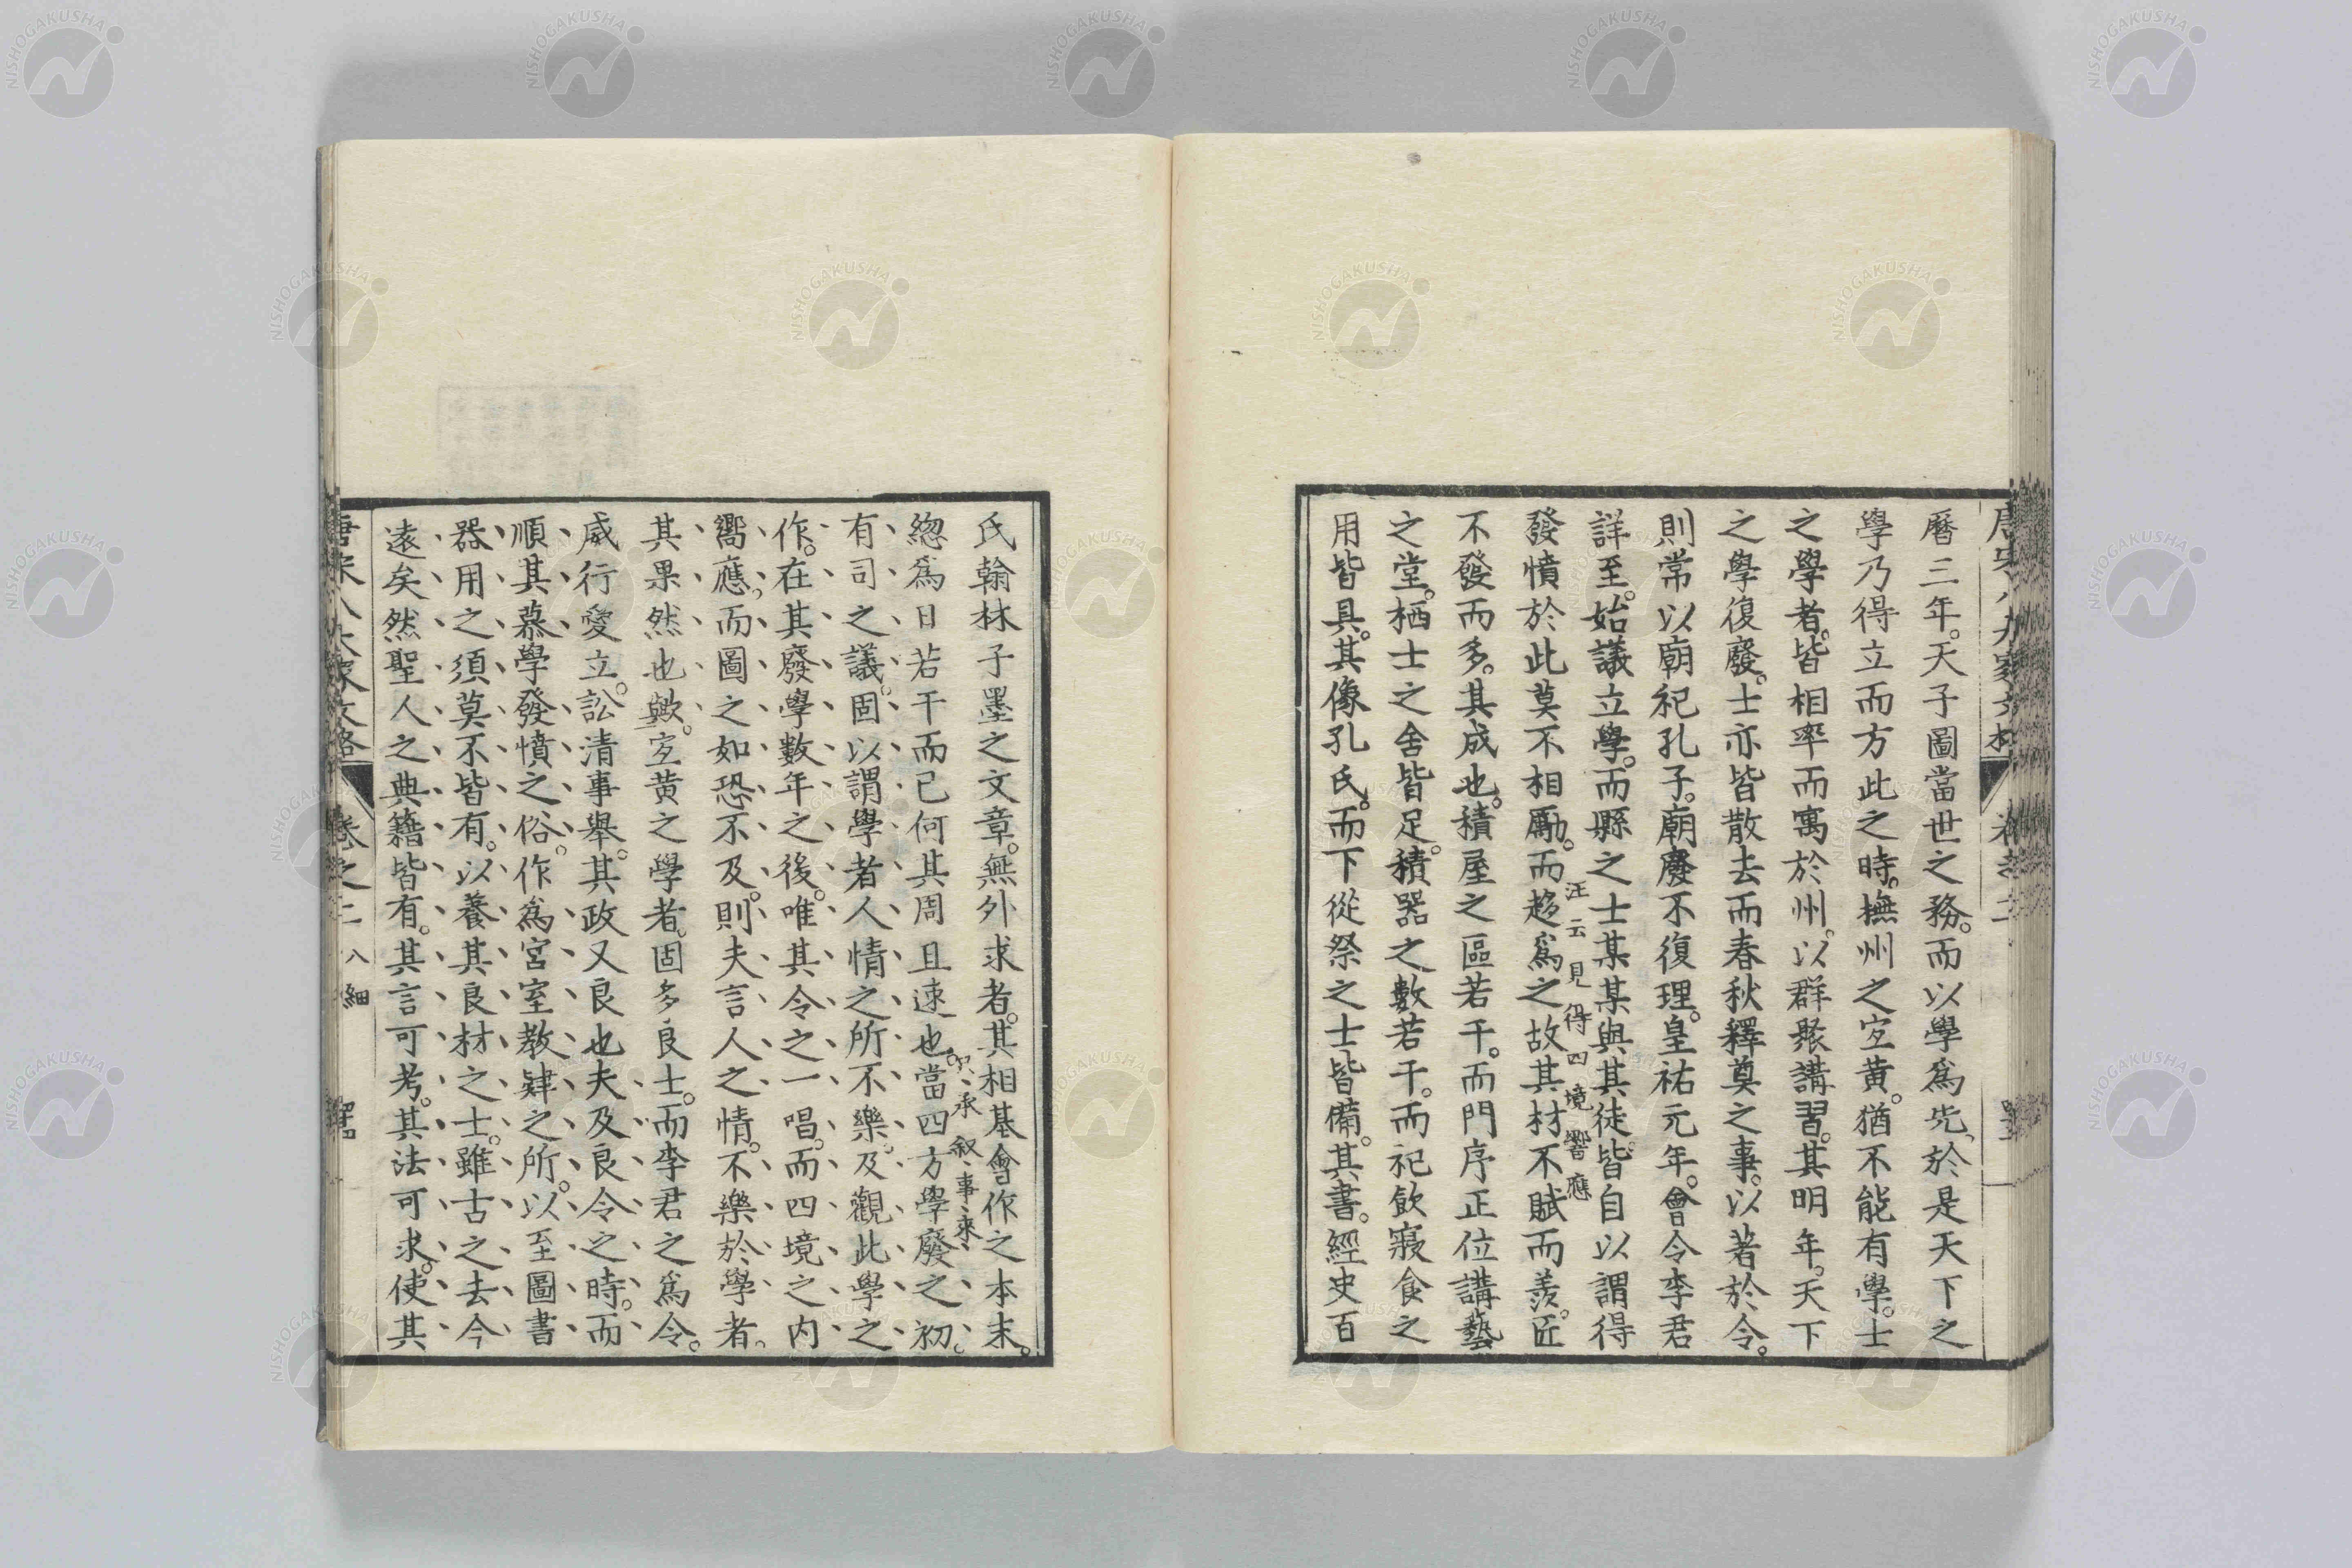 曆三年。天子圖當世之務。而以學爲先、於是天下之
學乃得立而方此之時。撫州之宜黃。猶不能有學。士
之學者。皆相率而寓於州。以群聚講習。其明年。天下
之學復廢。士亦皆散去而春秋釋奠之事。以著於令。
則常以廟祀孔子。廟廢不復理。皇祐元年。會令李君
詳至。始議立學。而縣之士某某與其徒。皆自以謂得
汪云見得四境響應
發憤於此莫不相勵。而趨爲之故其材不賦而羨。匠
不發而多。其成也。積屋之區若干。而門序正位講藝
之堂。栖士之舍皆足。積器之數若干。而祀飲寢食之
用皆具。其像孔氏。而下從祭之士皆備。其書。經史百
氏翰林子墨之文章。無外求者。其相基會作之本末。
承叙事來
總爲日若干而已何其周且速也。當四方學廢之初。
有司之議。固以謂學者人情之所不樂。及觀此學之
作。在其廢學數年之後。唯其令之一唱。而四境之内
嚮應。而圖之如恐不及。則夫言人之情。不樂於學者。
其果然也歟。宜黃之學者。固多良士。而李君之爲令。
威行愛立。訟清事舉。其政又良也夫及良令之時。而
順其慕學發憤之俗。作爲宮室教肄之所。以至圖書
器用之須莫不皆有。以養其良材之士。雖古之去今
遠矣然聖人之典籍皆有。其言可考。其法可求。使其
唐宋八大家文格 卷之二 八 細